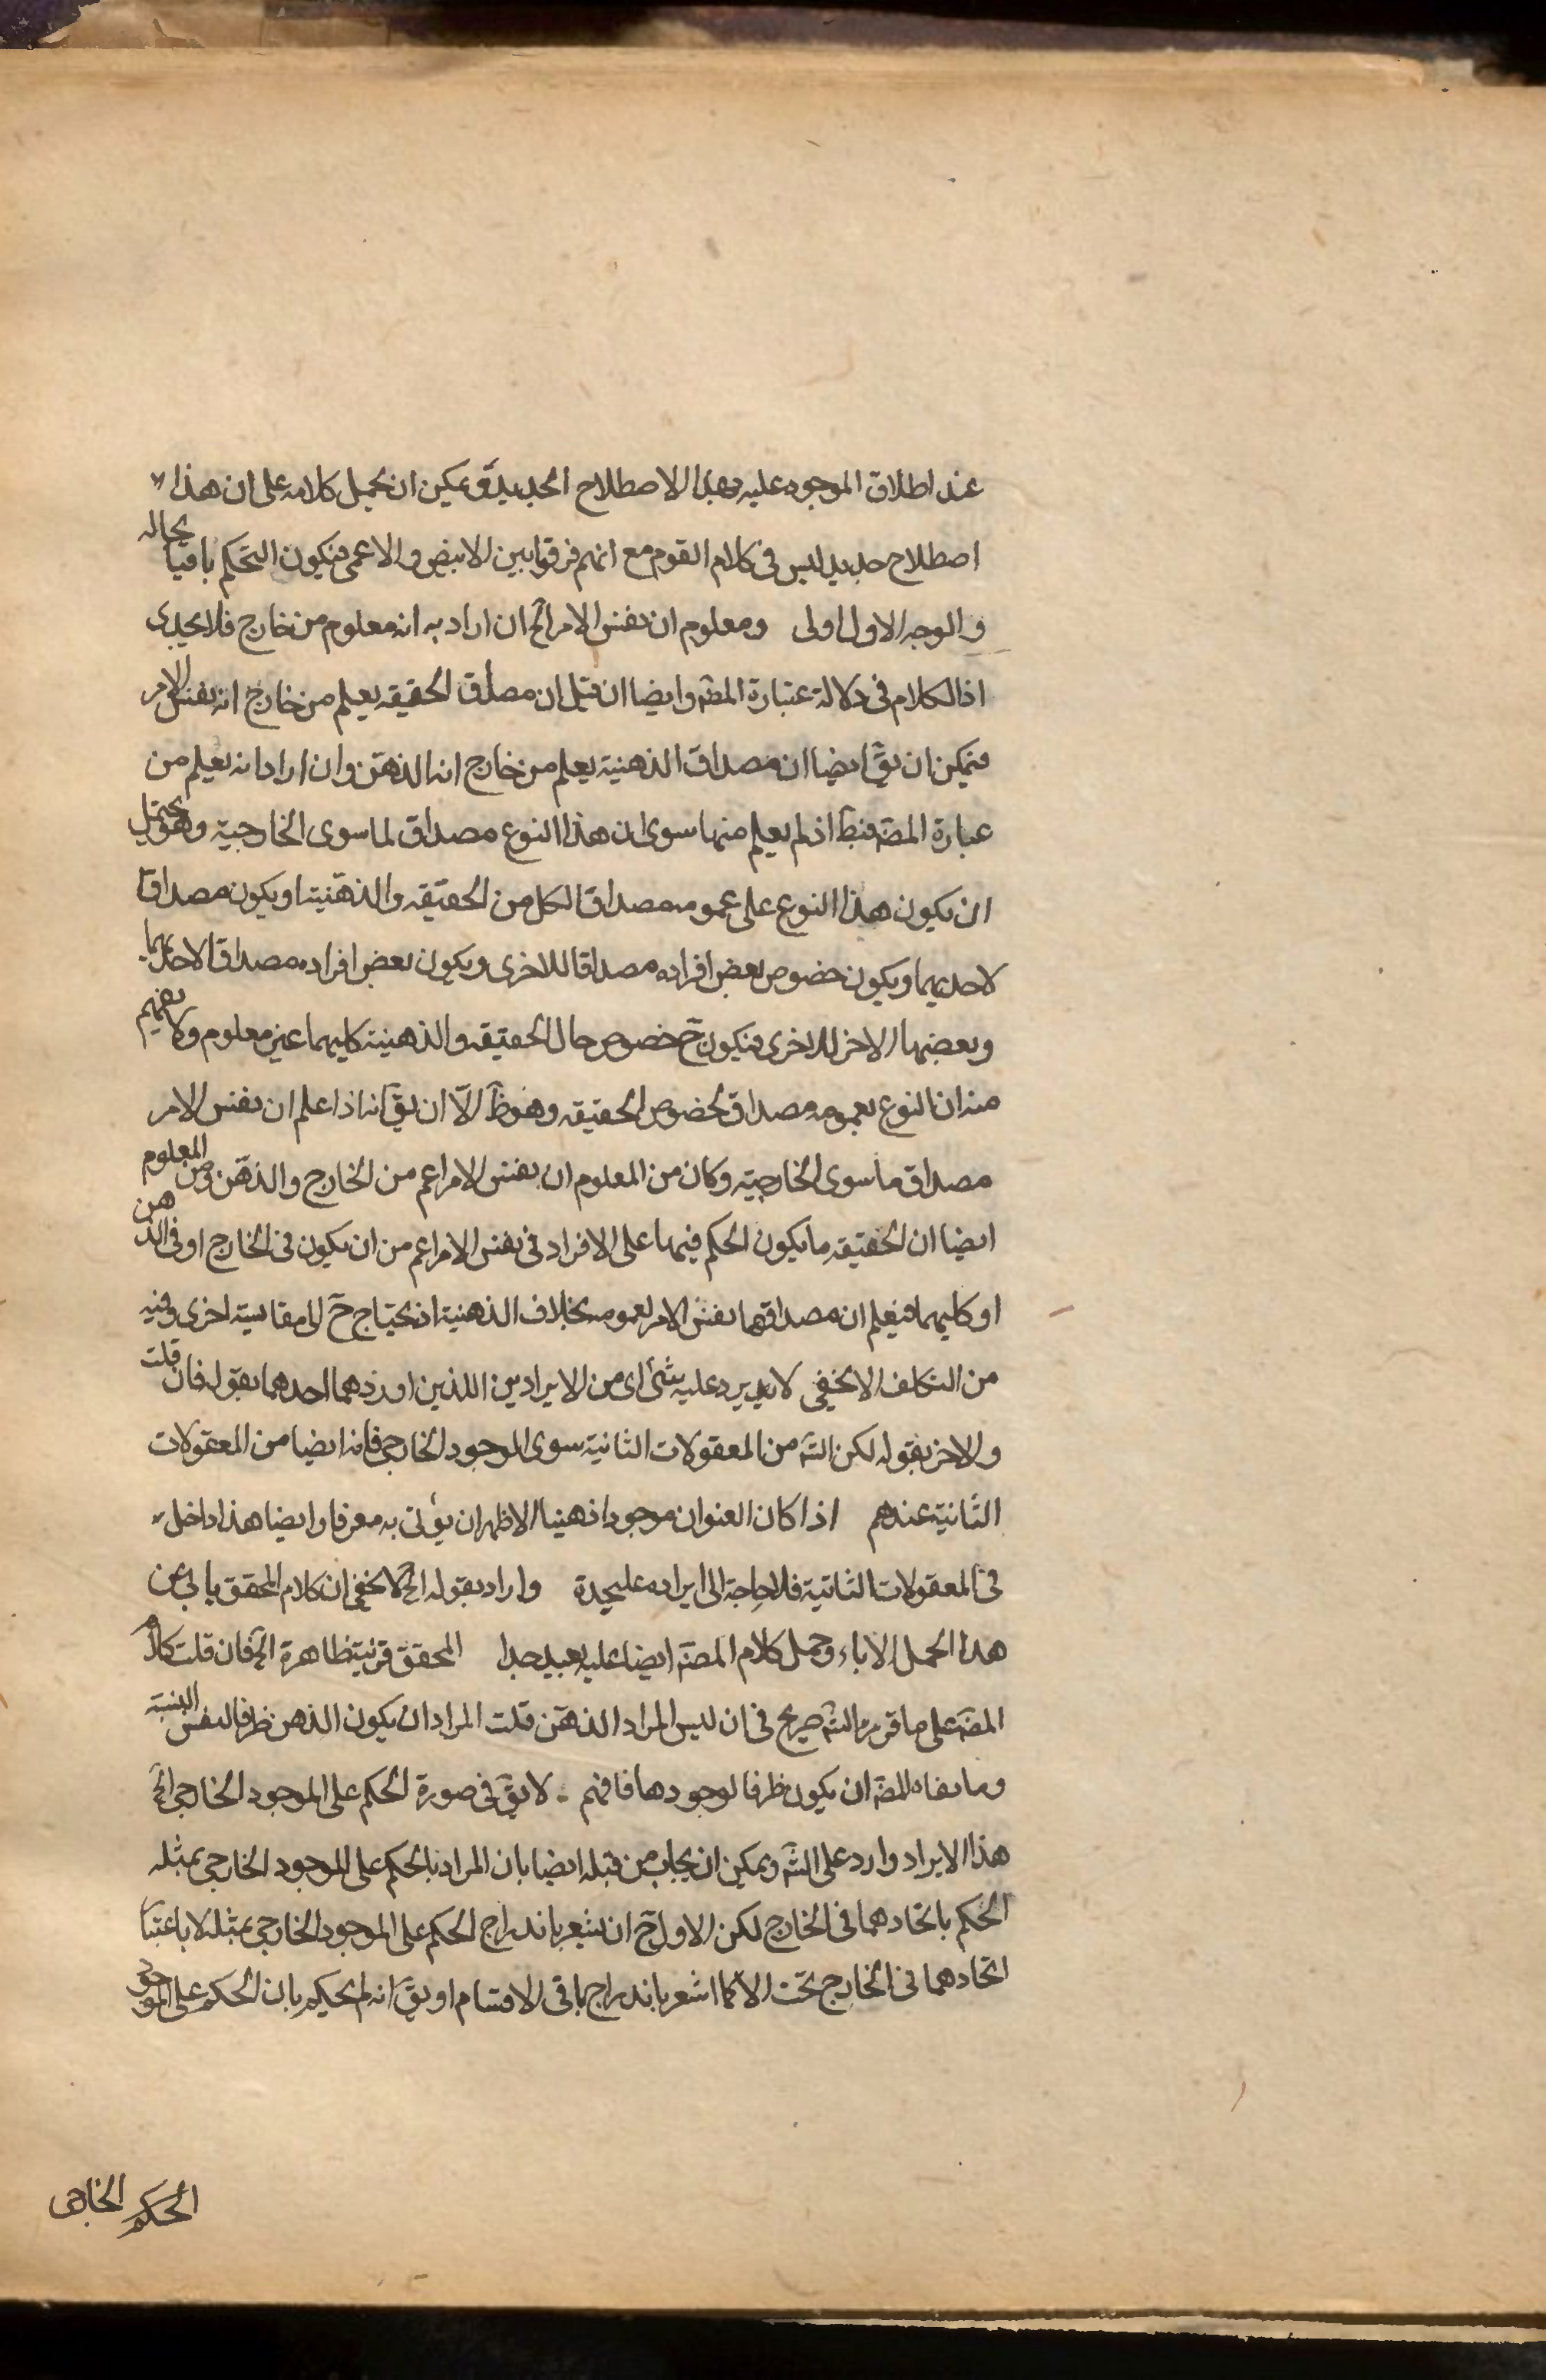 عند اطلاق الموجود عليه بهذا الاصطلاح الجديد ويمكن ان يحمل كلامه على ان هذا
اصطلاح جديد ليس فى كلام القوم مع انهم فرقوا بين الابيض والاعمى فيكون التحكم باقيا بحاله
والوجه الاول اولى ومعلوم ان نفس الامر الخ ان اراد به انه معلوم من خارج فلا يجدى
اذ الكلام فى دلالة عبارة المصـ وايضا ان قيل ان مصداق الحقيقيه يعلم من خارج انه نفس الامر
فيمكن ان يقـ ايضا ان مصداق الذهنية يعلم من خارج انه الذهن وان اراد انه يعلم من
عبارة المصـ فبط اذ لم يعلم منها سوى ان هذا النوع مصداق لما سوى الخارجية وهو يحتمل
ان يكون هذا النوع على عمومه مصداقا لكل من الحقيقيه والذهنية او يكون مصداقا
لاحديهما ويكون خصوص بعض افراده مصداقا للاخرى ويكون بعض افراده مصداقا لاحديهما
وبعضها الاخر للاخرى فيكون ح خصوص حال الحقيقيه والذهنية كليهما غير معلوم ولا يفهم
منه ان النوع بعمومه مصداق لخصوص الحقيقيه وهو ظ الا ان يقـ انه اذا علم ان نفس الامر
مصداق ما سوى الخارجية وكان من المعلوم ان نفس الامر اعم من الخارج والذهن ومن المعلوم
ايضا ان الحقيقيه ما يكون الحكم فيها على الافراد فى نفس الامر اعم من ان يكون فى الخارج او فى الذهن
او كليهما فيعلم ان مصداقها نفس الامر بعمومه بخلاف الذهنية اذ يحتاج ح الى مقايسة اخرى وفيه
من التكلف ما لا يخفى لا يرد عليه شئ اى من الايرادين اللذين اوردهما احدهما بقوله فان قلت
والاخر بقوله لكن الشـ من المعقولات الثانية سوى الموجود الخارجى فانه ايضا من المعقولات
الثانية عندهم اذا كان العنوان موجودا ذهنيا الاظهر ان يؤتى به معرفا وايضا هذا داخل
فى المعقولات الثانية فلا حاجة الى ايراده عليحدة واراد بقوله الخ لا يخفى ان كلام المحقق يابى عن
هذا الحمل الاباء وحمل كلام المصـ ايضا عليه بعيد جدا المحقق قرينة ظاهرة الخ فان قلت كلام
المصـ على ما قرره الشـ صريح فى ان ليس المراد الذهن قلت المراد ان يكون الذهن ظرفا لنفس النسبة
وما نفاه المصـ ان يكون ظرفا لوجودها فافهم لا يقـ فى صورة الحكم على الموجود الخارجى الخ
هذا الايراد وارد على الشـ ويمكن ان يجاب من قبله ايضا بان المراد بالحكم على الموجود الخارجى بمثله
الحكم باتحادهما فى الخارج لكن الاولى ح ان يشعر باندراج الحكم على الموجود الخارجى بمثله لا باعتبار
اتحادهما فى الخارج تحت الا كما اشعر باندراج باقى الاقسام او يقـ انه لم يحكم بان الحكم على الموجود
الحكم الخارجى